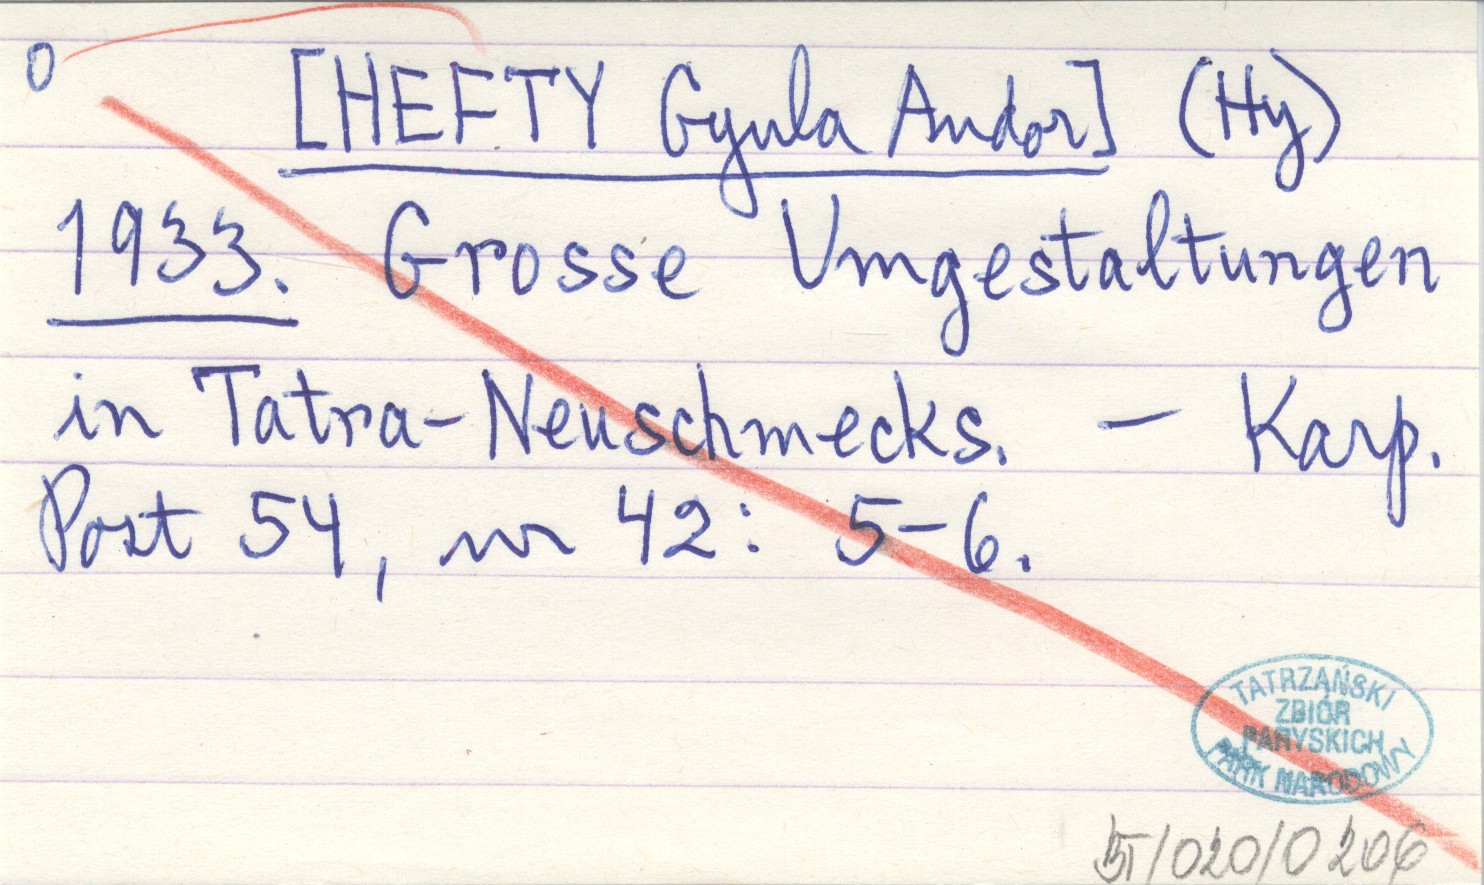 0 [HEFTY Gyula Andor] (Hy)
1933. Grosse Umgestaltungen
in Tatra-Neuschmecks. – Karp.
Post 54, nr 42: 5-6.
TATRZAŃSKI
ZBIÓR
PARYSKICH
PARK NARODOWY
/020/0206